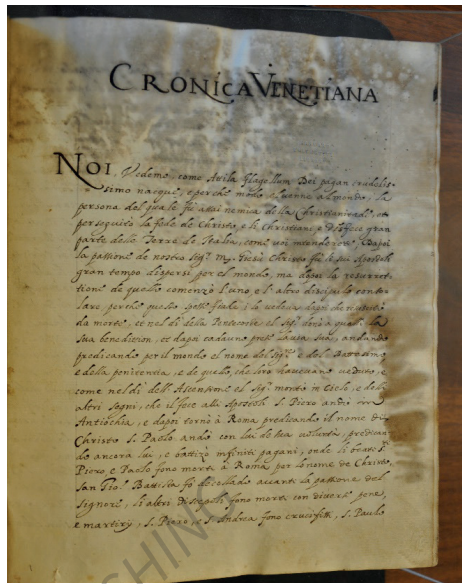 CRONICA VENETIANA
NOI, Vedemo, come Atila flagellum Dei pagan crudelis-
simo nacque, e perche modo venne al mondo, la
persona del quale fù assai nemica della Christianità, et
perseguitò la fede de Christo, e li Christiani, e disfece gran
parte delle Terre de Italia, come voi intenderete. Dapoi
la passione de nostro Sig.r M. Giesù Christo fù li soi Apostoli
gran tempo dispersi per el mondo, ma dapoi la resurret-
tione de quello comenzò l'uno e l'altro discipulo conso-
lare, perche questo
da morte, et nel dì della Pentecoste el Sig.r dette a quelli la
sua benedition, et dapoi cadauno prese la sua via, andando
predicando per il mondo el nome del Sig.r e del Battesimo
e della penitentia, e de quello, che loro havevano veduto, e
come nel dì dell'Ascensione el Sig.r montò in Cielo, e delli
altri segni, che il fece alli Apostoli S. Piero andò in
Antiochia, e dapoi tornò à Roma predicando il nome di
Christo S. Paolo andò con lui de sua voluntà, predican-
do ancora lui, e battizò infiniti pagani, onde li beati S.
Piero, e Paolo fono morti à Roma per lo nome de Christo,
San Gio. Battista fò decollado avanti la passione del
Signore, li altri Discepoli fono morti con diverse pene,
e martirij, S. Piero, e S. Andrea fono crucefissi, S. Paulo